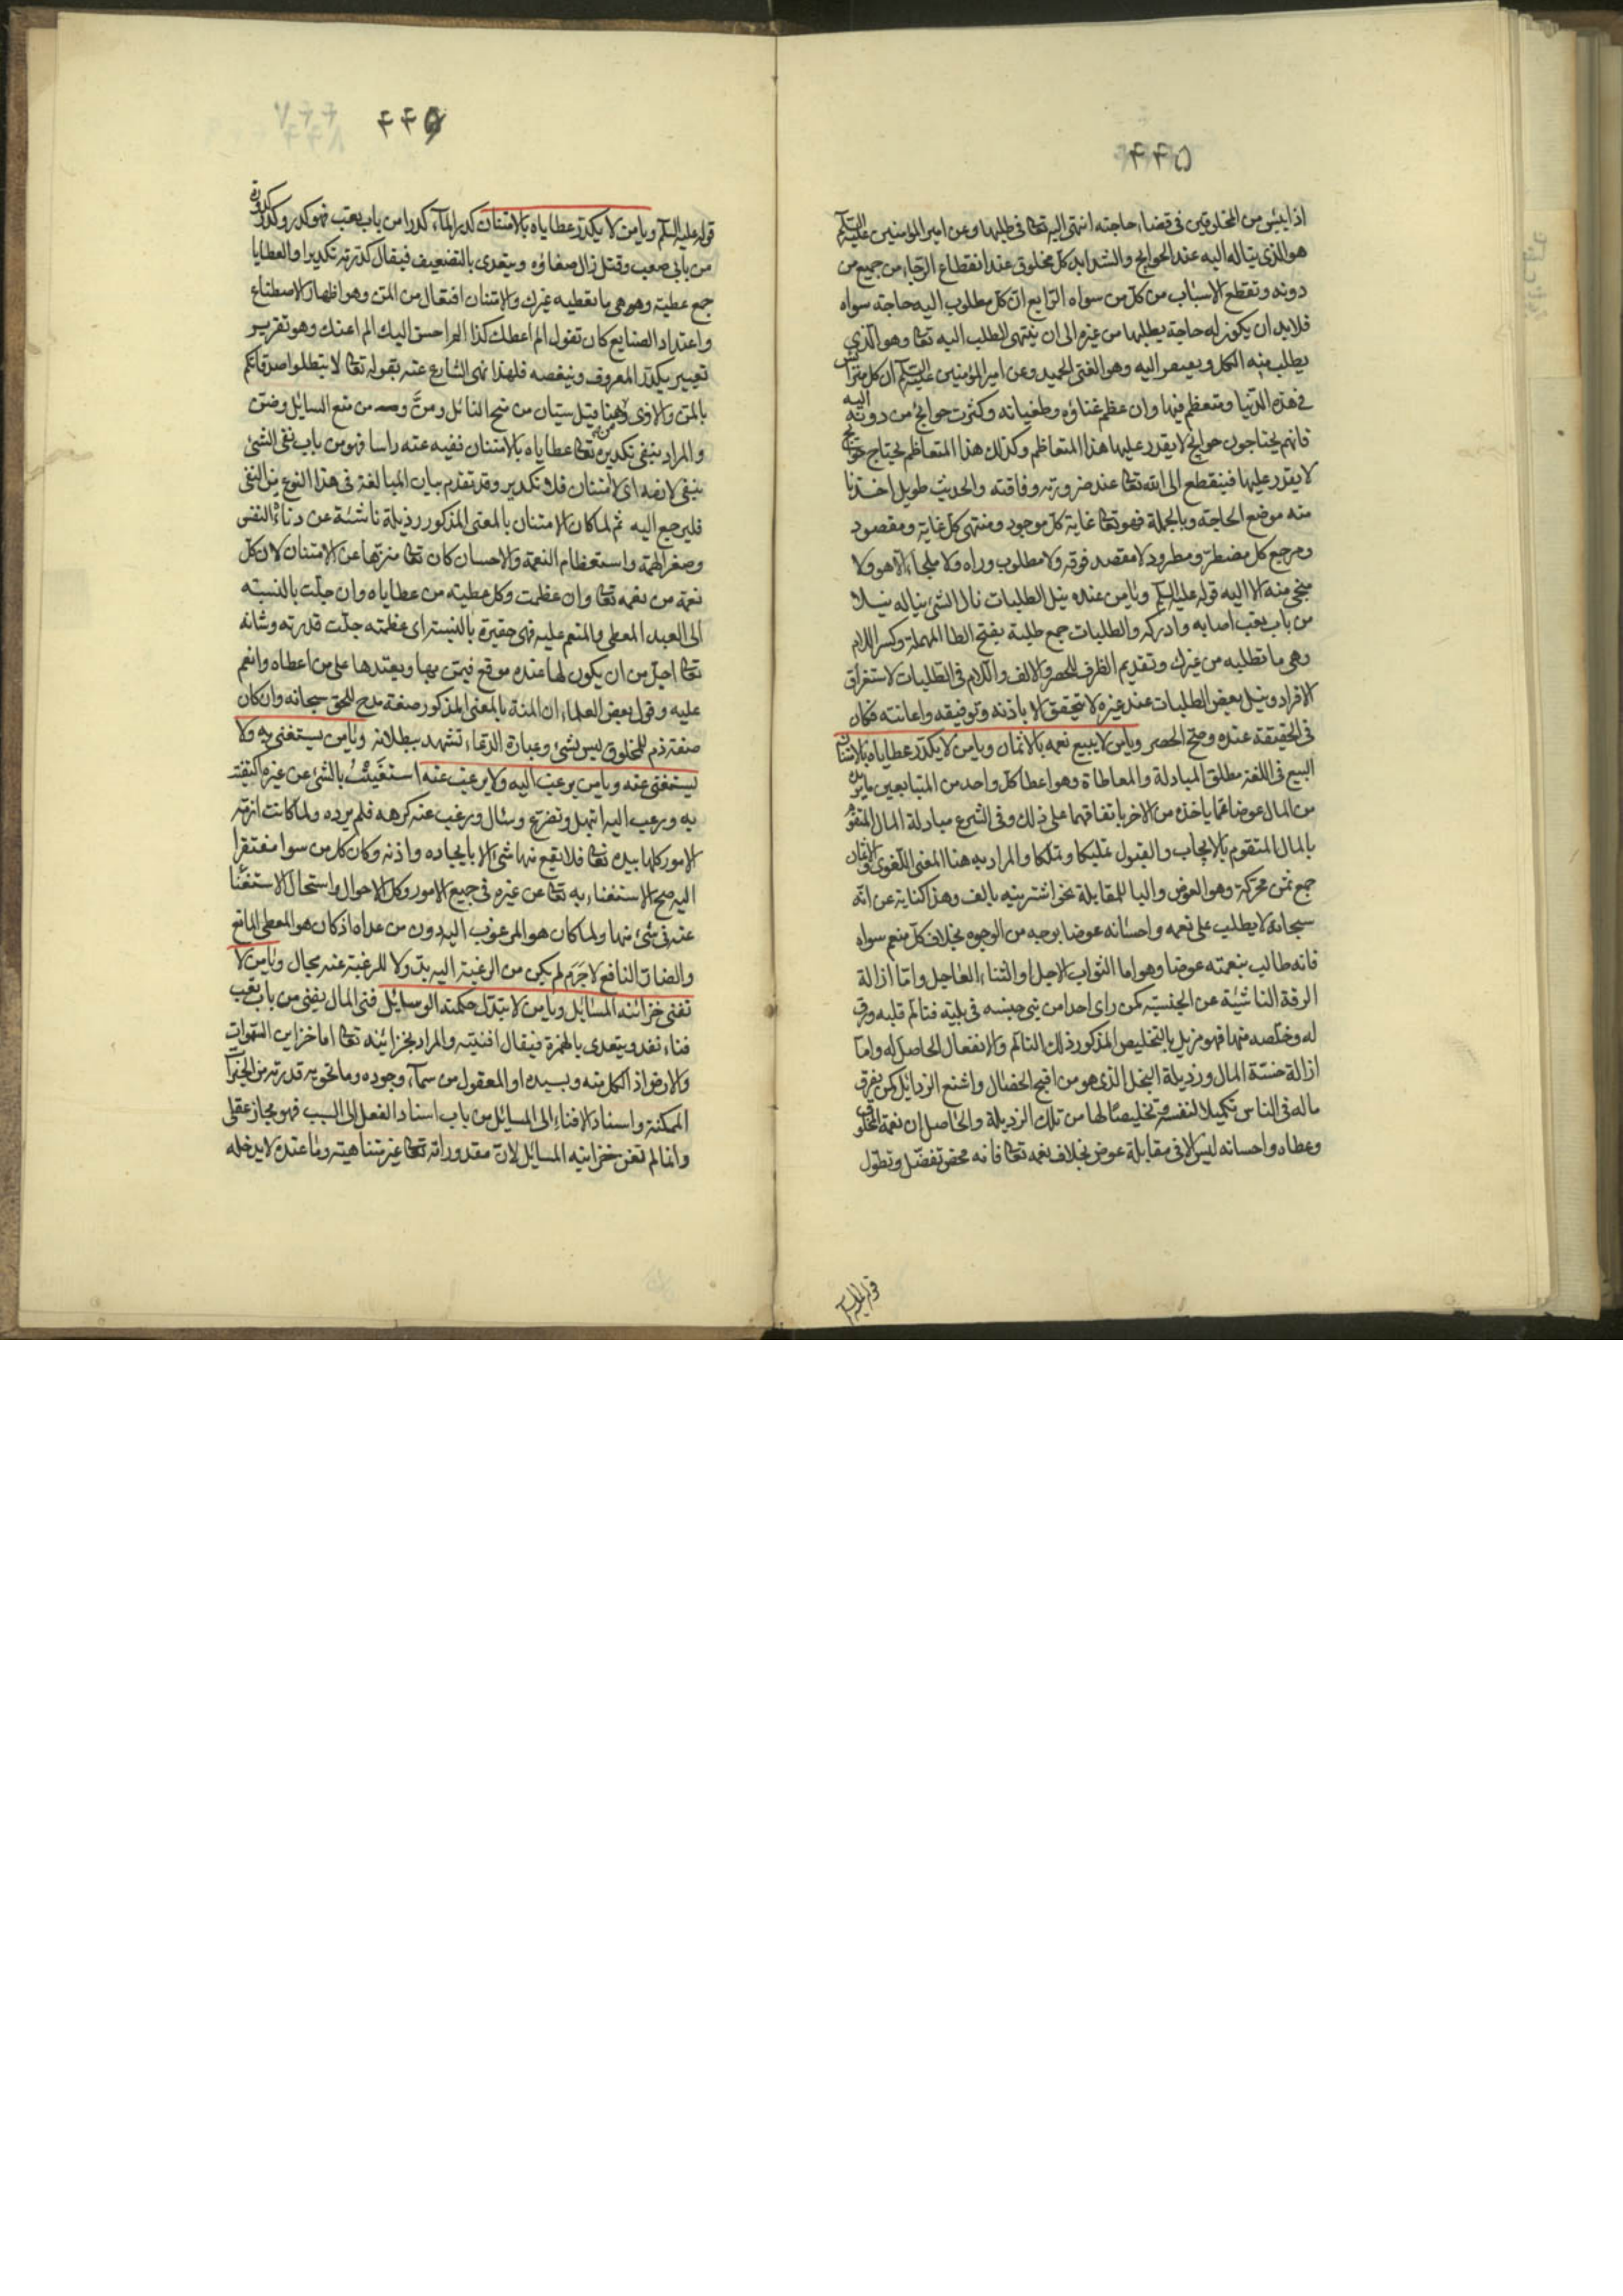 ۴۴۵
اذا يئس من المخلوقين فى قضاء حاجته انتهى اليه تعا فى طلبها وعن امير المؤمنين عليه السلم
هو الذى يتاله اليه عند الحوايج والشدايد كل مخلوق عند انقطاع الرجاء من جميع من
دونه وتقطع الاسباب من كل من سواه الرابع ان كل مطلوب اليه حاجة سواه
فلابد ان يكون له حاجة يطلبها من غيره الى ان ينتهى الطلب اليه تعا وهو الذى
يطلب منه الكل ويصير اليه وهو الغنى الحميد وعن امير المؤمنين عليه السلم ان كل مترائس
فى هذه الدنيا ومتعظم فيها وان عظم غناؤه وطغيانه وكثرت حوايج من دونه اليه
فانهم يحتاجون حوايج لا يقدر عليها هذا المتعاظم وكذلك هذا المتعاظم يحتاج حوايج
لا يقدر عليها فينقطع الى الله تعا عند ضرورته وفاقته والحديث طويل اخذنا
منه موضع الحاجة وبالجملة فهو تعا غاية كل موجود ومنتهى كل غاية ومقصود
ومرجع كل مضطر ومطرود لا مقصد فوقه ولا مطلوب وراه ولا ملجأ الا هو ولا
منجى منه الا اليه قوله عليه السلم ويا من عنده نيل الطلبات نال الشئ يناله نيلا
من باب تعب اصابه وادركه والطلبات جمع طلبة بفتح الطا المهملة وكسر اللام
وهى ما تطلبه من غيرك وتقديم الظرف للحصر والالف واللام فى الطلبات لاستغراق
الافراد ونيل بعض الطلبات عند غيره لا يتحقق الا باذنه وتوفيقه واعانته فكان
فى الحقيقة عنده وصح الحصر ويا من لا يبيع نعمه بالاثمان ويا من لا يكدر عطاياه بالامتنان
البيع فى اللغة مطلق المبادلة والمعاطاة وهو اعطا كل واحد من المتبايعين ما يريد
من المال عوضا عما ياخذه من الاخر باتفاقهما على ذلك وفى الشرع مبادلة المال المتقوم
بالمال المتقوم بالايجاب والقبول تمليكا وتملكا والمراد به هنا المعنى اللغوى والاثمان
جمع ثمن محركة وهو العوض والبا للمقابلة نحو اشتريته بالف وهذا كناية عن انه
سبحانه لا يطلب على نعمه واحسانه عوضا بوجه من الوجوه بخلاف كل منعم سواه
فانه طالب بنعمته عوضا وهو اما الثواب الاجل او الثناء العاجل واما ازالة
الرقة الناشئة عن الجنسية كمن راى احدا من بنى جنسه فى بلية فتالم قلبه ورق
له وخلصه منها فهو مزيل بالتخليص المذكور ذلك التالم والانفعال الحاصل له واما
ازالة خسة المال ورذيلة البخل الذى هو من اقبح الخصال واشنع الرذايل كمن يفرق
ماله فى الناس تكميلا لنفسه وتخليصا لها من تلك الرذيلة والحاصل ان نعمة المخلوق
وعطاه واحسانه ليس الا فى مقابلة عوض بخلاف نعمه تعا فانه محض تفضل وتطول
قوله عليه السلم
۴۴۶
قوله عليه السلم ويا من لا يكدر عطاياه بالامتنان كدر المآء كدرا من باب تعب فهو كدر وكدر كدورة
من بابى صعب وقتل زال صفاؤه ويتعدى بالتضعيف فيقال كدرته تكديرا والعطايا
جمع عطية وهى ما تعطيه غيرك والامتنان افتعال من المن وهو اظهار الاصطناع
واعتداد الصنايع كان تقول الم اعطك كذا الم احسن اليك الم اعنك وهو تقرير
تعيير يكدر المعروف وينغصه فلهذا نهى الشارع عنه بقوله تعا لا تبطلوا صدقاتكم
بالمن والاذى وهنا قيل سيان من منح النائل ومن ومن منع السايل وضن
والمراد بنفى تكديره تعا عطاياه بالامتنان نفيه عنه راسا فهو من باب نفى الشئ
بنفى لازمه اى لا امتنان فلا تكدير وقد تقدم بيان المبالغة فى هذا النوع من النفى
فليرجع اليه ثم لما كان الامتنان بالمعنى المذكور رذيلة ناشئة عن دناءة النفس
وصغر الهمة واستعظام النعمة والاحسان كان تعا منزها عن الامتنان لان كل
نعمة من نعمه تعا وان عظمت وكل عطية من عطاياه وان جلت بالنسبة
الى العبد المعطى والمنعم عليه فهى حقيرة بالنسبة الى عظمته جلت قدرته وشانه
تعا اجل من ان يكون لها عنده موقع فيمن بها ويعتدها على من اعطاه وانعم
عليه وقول بعض العلماء ان المنة بالمعنى المذكور صفة مدح للحق سبحانه وان كان
صفة ذم للمخلوق ليس بشئ وعبارة الدعاء تشهد ببطلانه ويا من يستغنى به ولا
يستغنى عنه ويا من يرغب اليه ولا يرغب عنه استغنيت بالشئ عن غيره اكتفيت
به ورغب اليه ابتهل وتضرع وسال ورغب عنه كرهه فلم يرده ولما كانت ازمة
الامور كلها بيده تعا فلا يقع منها شئ الا بايجاده واذنه وكان كل من سواه مفتقرا
اليه صح الاستغناء به تعا عن غيره فى جميع الامور وكل الاحوال واستحال الاستغنا
عنه فى شئ منها ولما كان هو المرغوب اليه دون من عداه اذ كان هو المعطى المانع
والضار النافع لا جرم لم يكن من الرغبة اليه بد ولا للرغبة عنه مجال ويا من لا
تفنى خزائنه المسائل ويا من لا تبدل حكمته الوسايل فنى المال يفنى من باب تعب
فناء نفد ويتعدى بالهمزة فيقال افنيته والمراد بخزائنه تعا اما خزاين السموات
والارض اذ الكل منه وبيده او المعقول من سمآء وجوده وما تحويه قدرته من الخيرات
الممكنة واسناد الافناء الى المسايل من باب اسناد الفعل الى السبب فهو مجاز عقلى
وانما لم تفن خزاينه المسائل لان مقدوراته تعا غير متناهية وما عنده لا يدخله